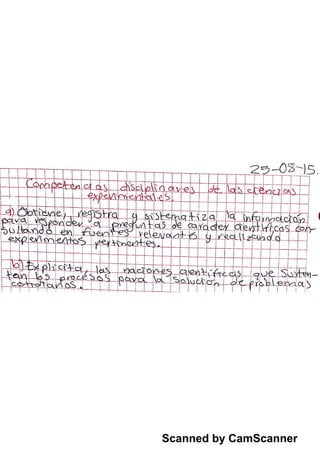 25-08-15.
Competencias disciplinares de las ciencias
experimentales.
a) Obtiene, registra y sistematiza la información
para responder a preguntas de carácter científicos con-
sultando en fuentes relevantes y realizando
experimentos pertinentes.
b) Explicita, las nociones científicas que susten-
tan los procesos para la solución de problemas
cotidianos.
Scanned by CamScanner